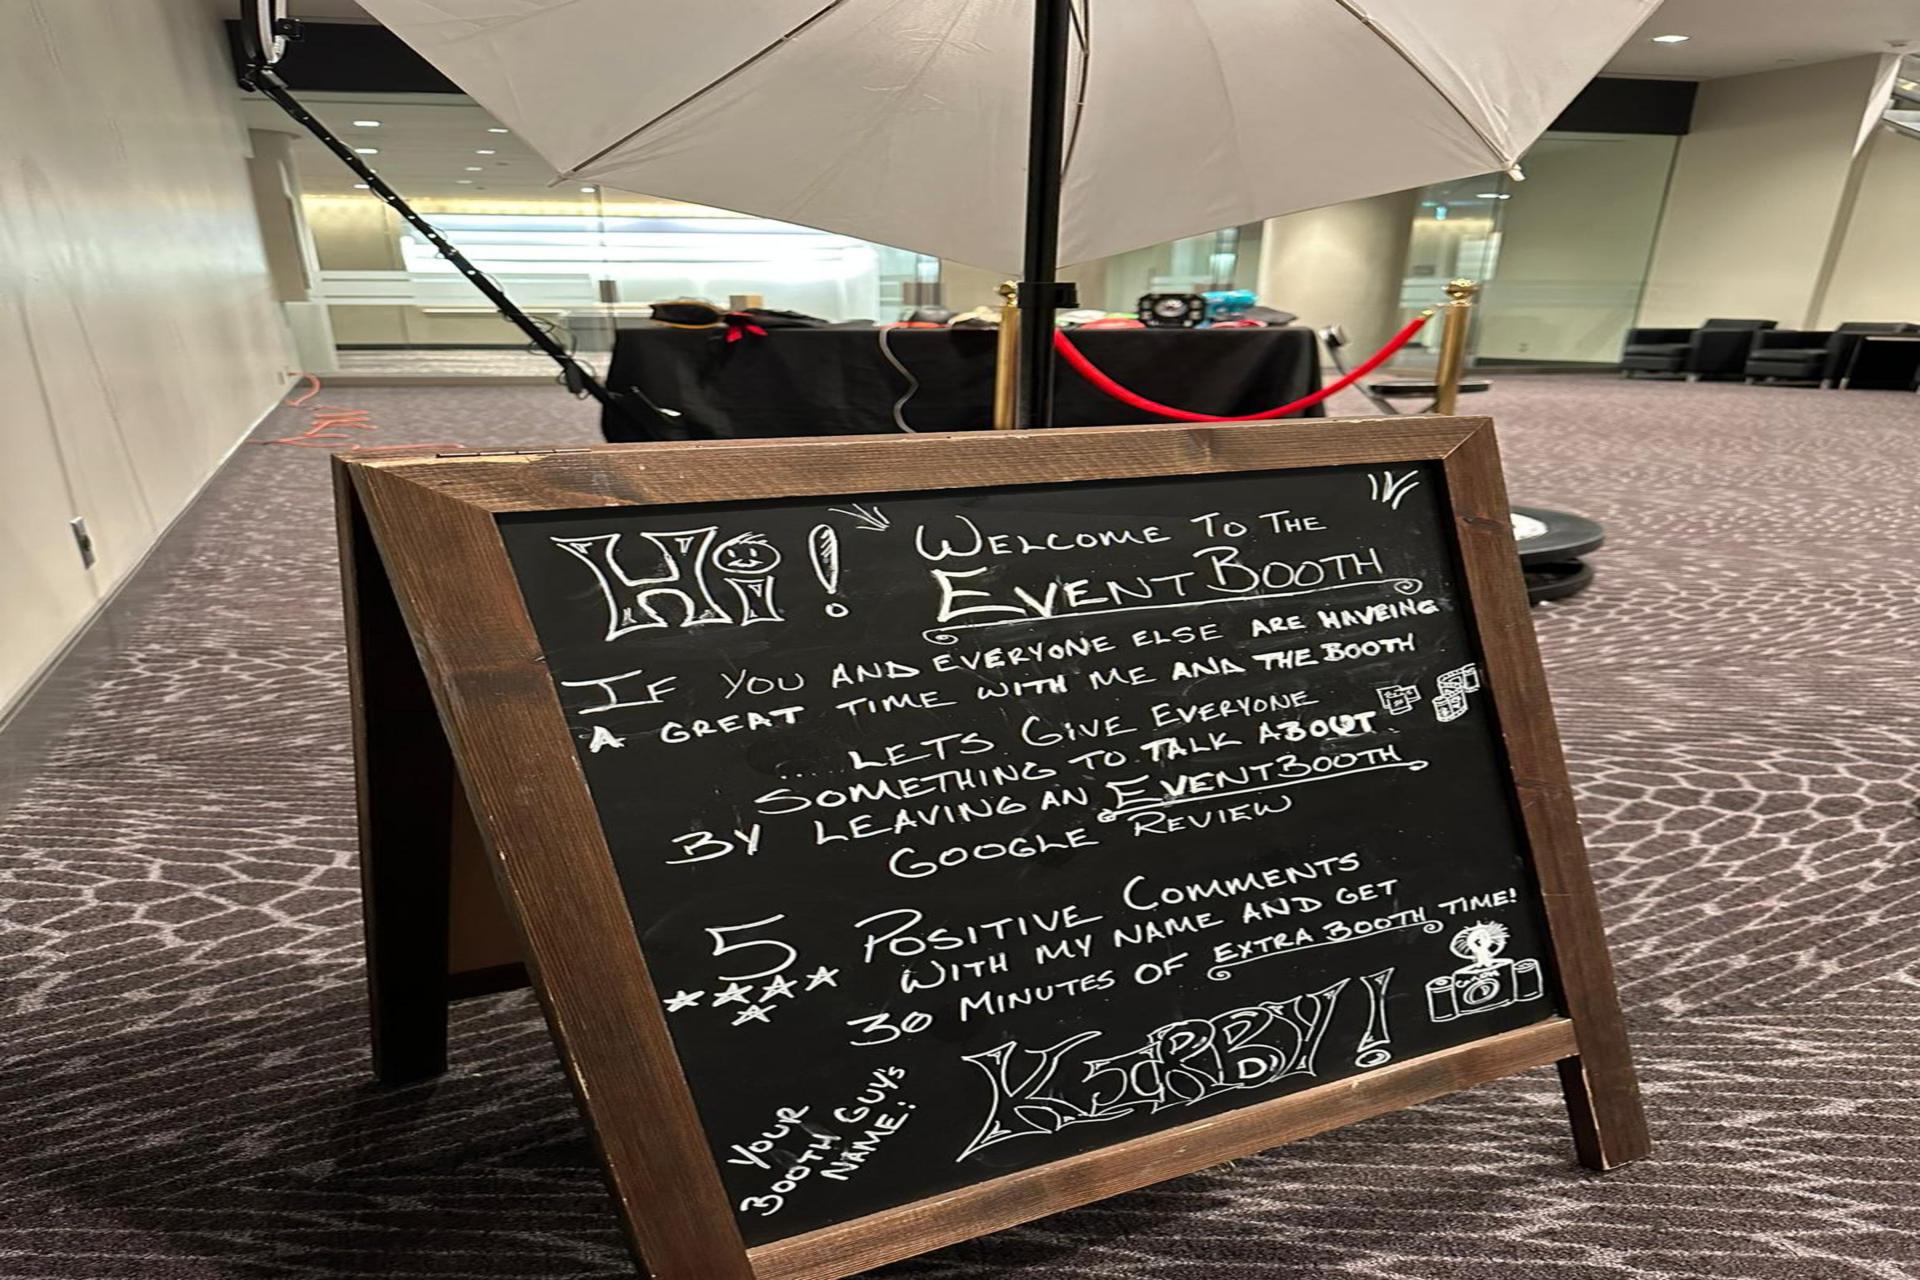 Hi! WELCOME TO THE
EVENTBOOTH
IF YOU AND EVERYONE ELSE ARE HAVEING
A GREAT TIME WITH ME AND THE BOOTH
.... LETS GIVE EVERYONE
SOMETHING TO TALK ABOUT
BY LEAVING AN EVENTBOOTH
GOOGLE REVIEW
5 POSITIVE COMMENTS
WITH MY NAME AND GET
30 MINUTES OF EXTRA BOOTH TIME!
YOUR
BOOTH GUY'S
NAME:
KIRBY!